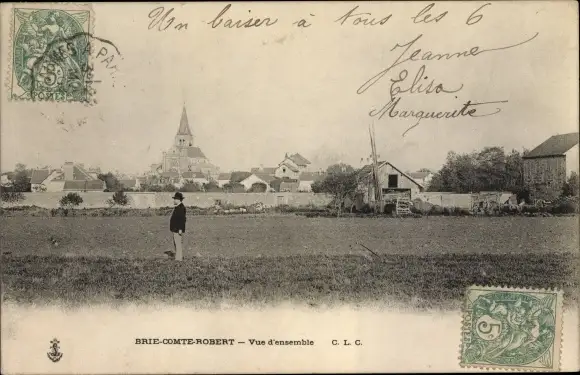 Un baiser à tous les 6
Jeanne
Elisa
Marguerite
BRIE-COMTE-ROBERT — Vue d'ensemble C. L. C.
5